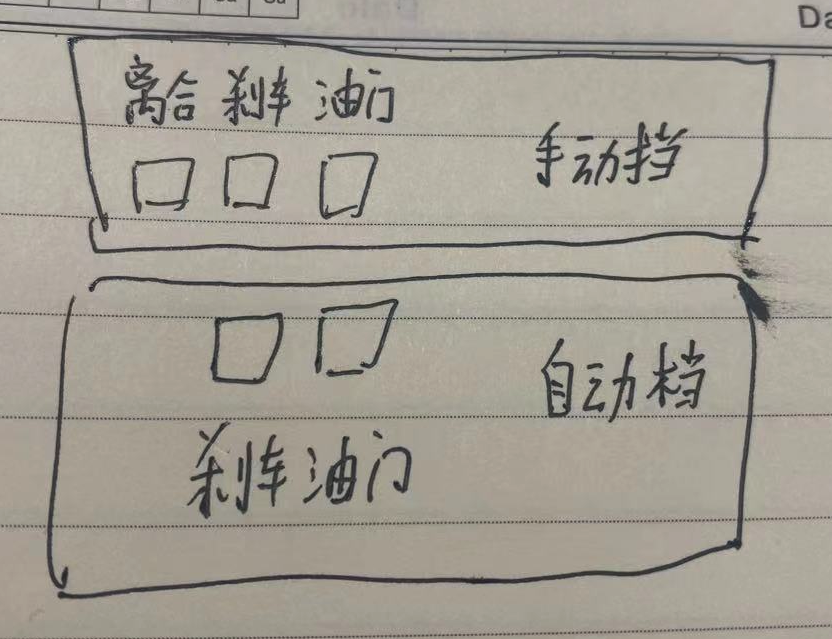 Da
离合 刹车 油门
手动挡
自动档
刹车 油门